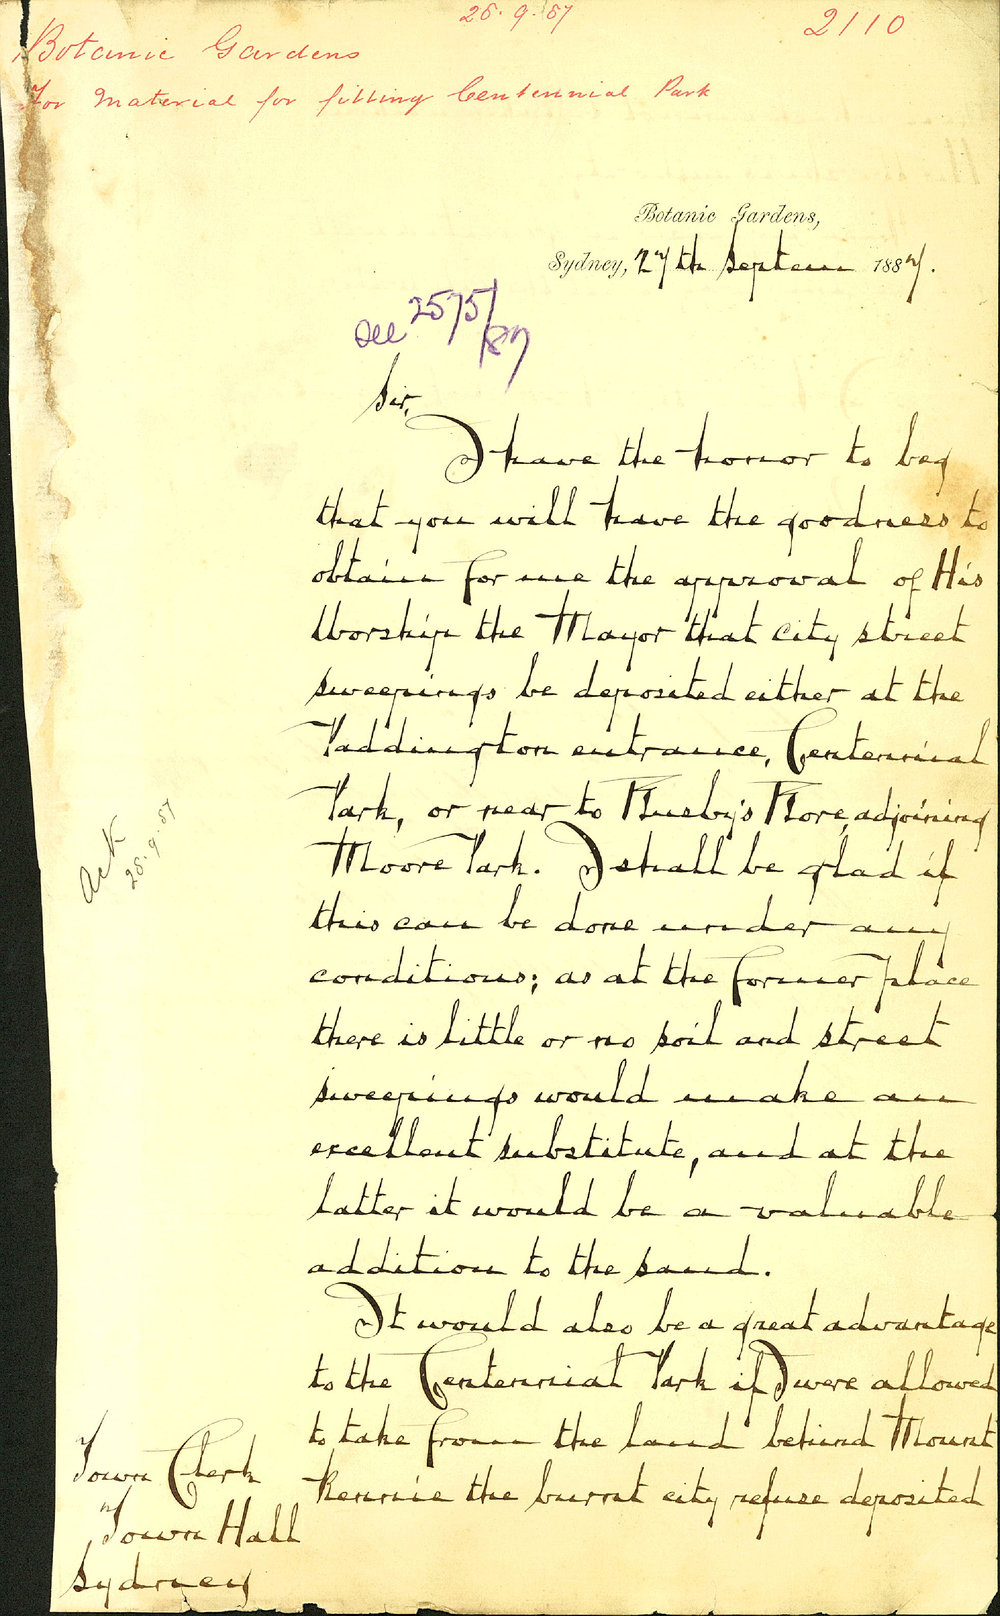 28.9.87
2110
Botanic Gardens
For Material for filling Centennial Park
Botanic Gardens,
Sydney, 27th Septem 1887.
See 2575/87
Sir,
I have the honor to beg
that you will have the goodness to
obtain for me the approval of His
Worship the Mayor that city street
sweepings be deposited either at the
Paddington entrance, Centennial
Park, or near to Busby's Bore, adjoining
Moore Park. I shall be glad if
this can be done under any
conditions; as at the former place
there is little or no soil and street
sweepings would make an
excellent substitute, and at the
latter it would be a valuable
addition to the sand.
It would also be a great advantage
to the Centennial Park if I were allowed
to take from the land behind Mount
Rennie the burnt city refuse deposited
Ack
28.9.87
Town Clerk
Town Hall
Sydney